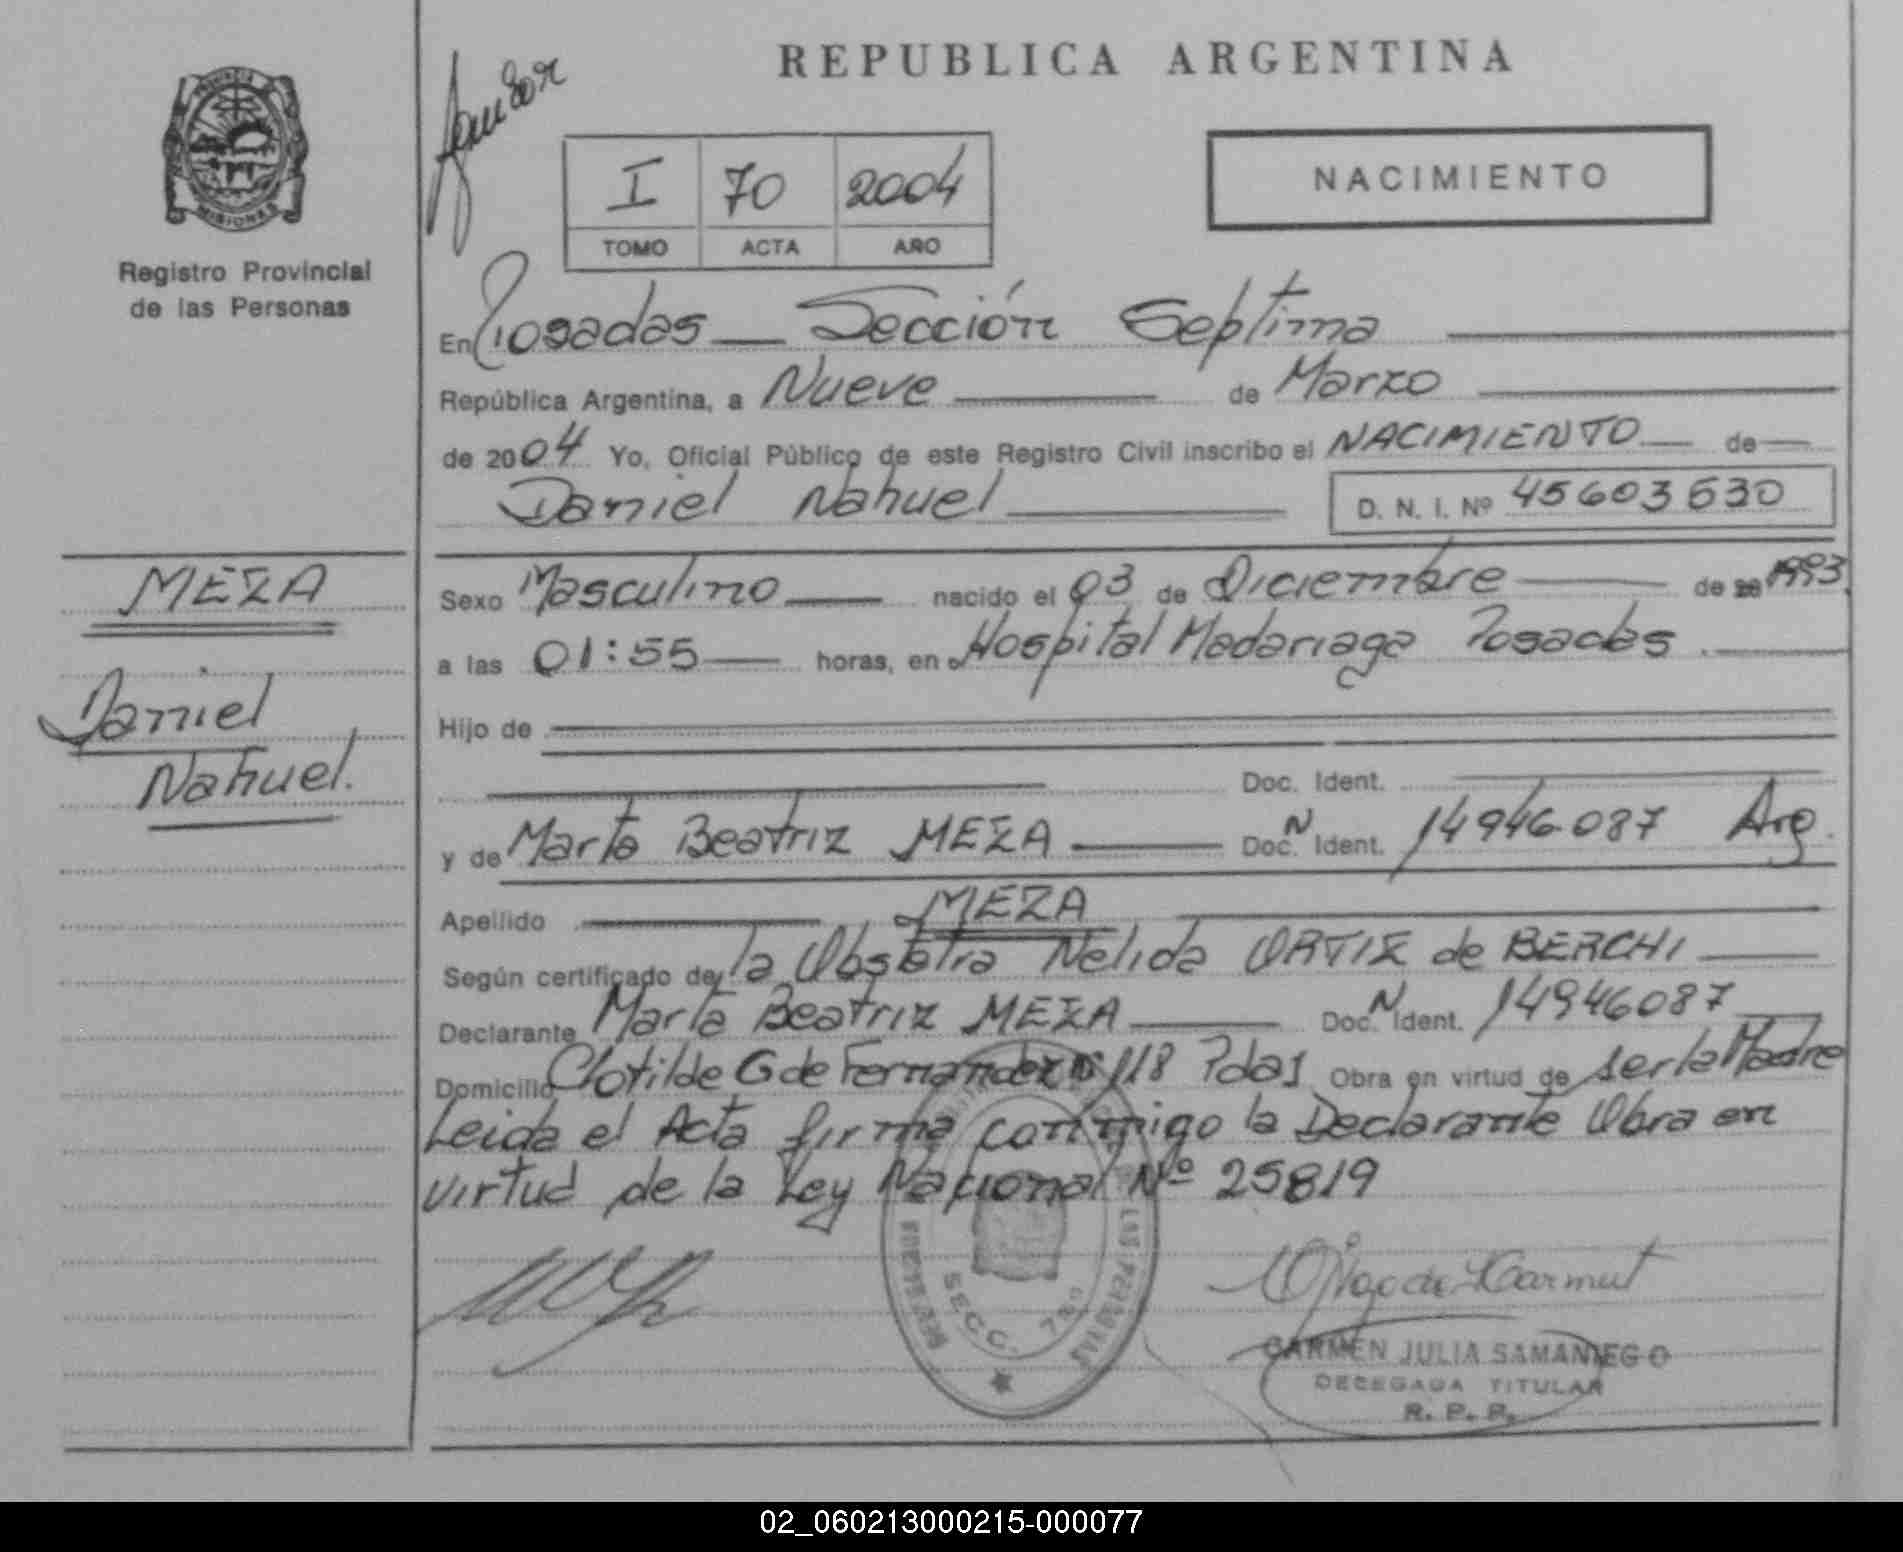 REPUBLICA ARGENTINA
PROVINCIA
MISIONES
Registro Provincial
de las Personas
I 70 2004
TOMO ACTA AÑO
NACIMIENTO
En Posadas Sección Septima
República Argentina, a Nueve de Marzo
de 2004 Yo, Oficial Público de este Registro Civil inscribo el NACIMIENTO de
Daniel Nahuel D. N. I. Nº 45603530
MEZA
Daniel
Nahuel.
Sexo Masculino nacido el 03 de Diciembre de 1993
a las 01:55 horas, en Hospital Madariaga Posadas
Hijo de
Doc. Ident.
y de Marta Beatriz MEZA Doc. N Ident. 14946.087 Arg.
Apellido MEZA
Según certificado de la Obstetra Nelida ORTIZ de BERCHI
Declarante Marta Beatriz MEZA Doc. N Ident. 14946087
Domicilio Clotilde G de Fernandez Nº 118 Pdas Obra en virtud de ser la Madre
Leida el Acta firma conmigo la Declarante Obra en
virtud de la Ley Nacional Nº 25819
SECC. 7
CARMEN JULIA SAMANIEGO
DELEGADA TITULAR
R. P. P.
02_060213000215-000077